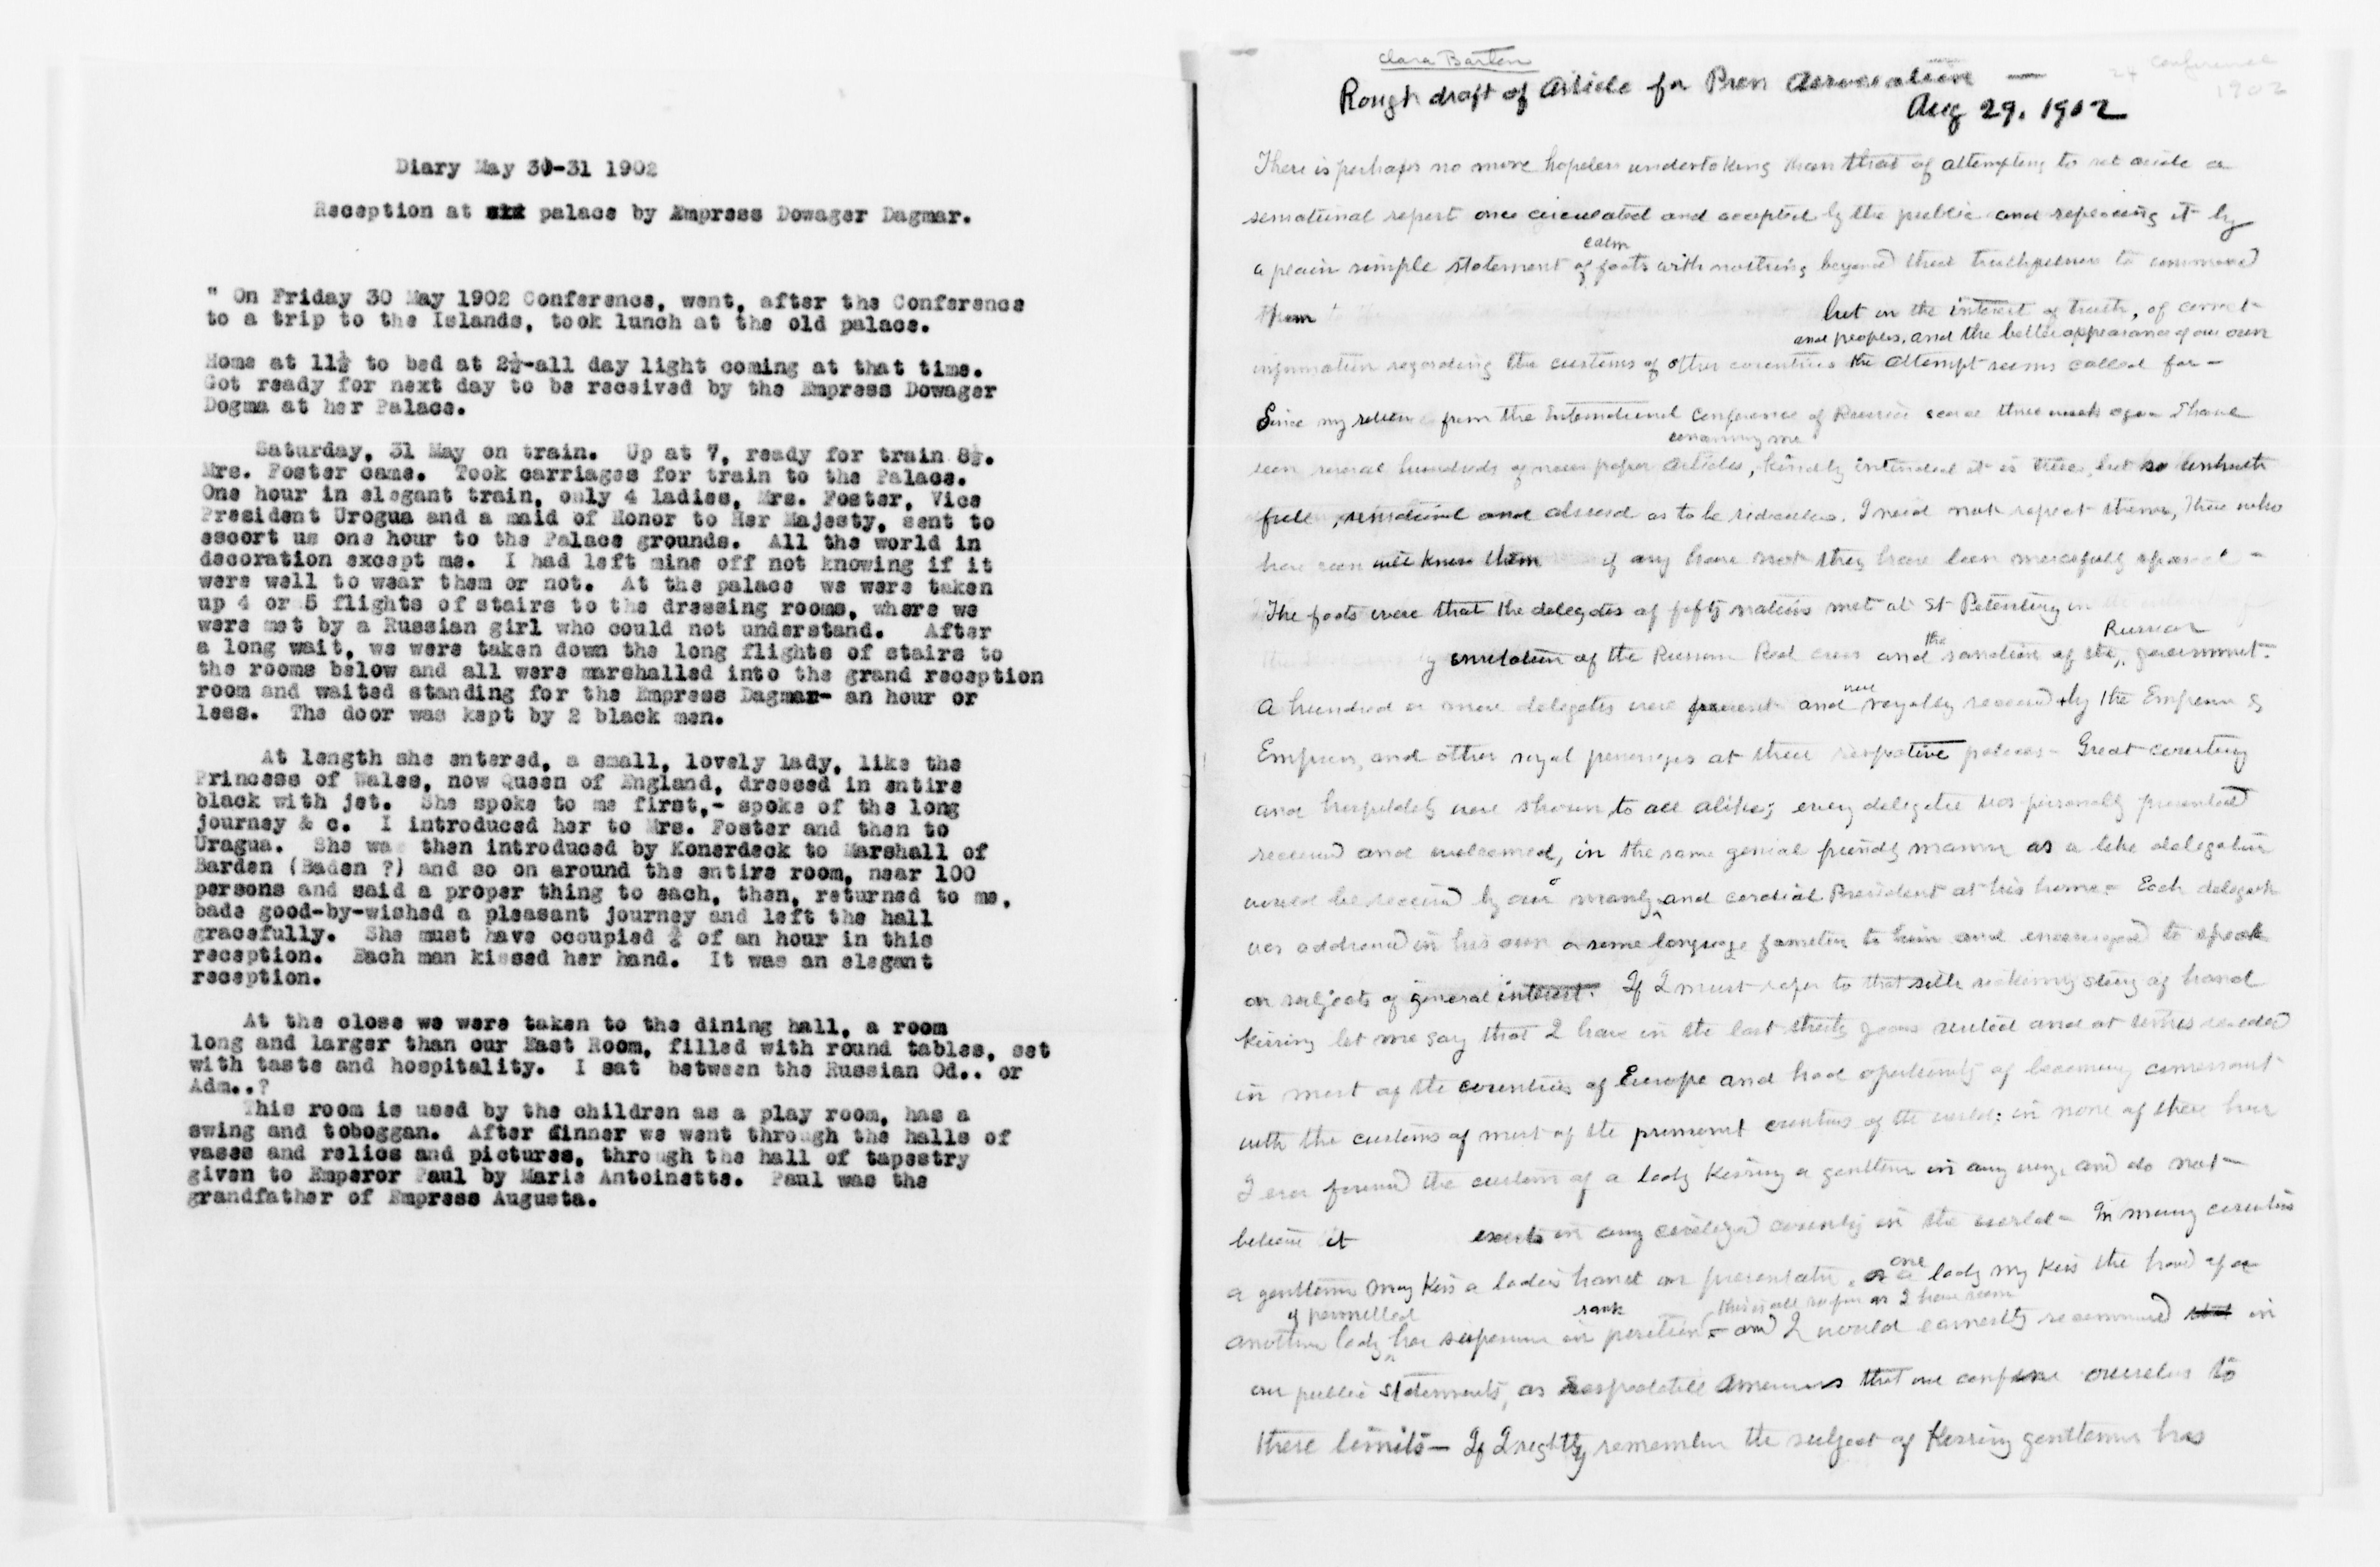 Diary May 30-31 1902
Reception at palace by Empress Dowager Dagmar.
" On Friday 30 May 1902 Conference, went, after the Conference
to a trip to the Islands, took lunch at the old palace.
Home at 11½ to bed at 2½-all day light coming at that time.
Got ready for next day to be received by the Empress Dowager
Dogma at her Palace.
Saturday, 31 May on train. Up at 7, ready for train 8½.
Mrs. Foster came. Took carriages for train to the Palace.
One hour in elegant train, only 4 ladies, Mrs. Foster, Vice
President Urogua and a maid of Honor to Her Majesty, sent to
escort us one hour to the Palace grounds. All the world in
decoration except me. I had left mine off not knowing if it
were well to wear them or not. At the palace we were taken
up 4 or 5 flights of stairs to the dressing rooms, where we
were met by a Russian girl who could not understand. After
a long wait, we were taken down the long flights of stairs to
the rooms below and all were marshalled into the grand reception
room and waited standing for the Empress Dagmar- an hour or
less. The door was kept by 2 black men.
At length she entered, a small, lovely lady, like the
Princess of Wales, now Queen of England, dressed in entire
black with jet. She spoke to me first,- spoke of the long
journey & c. I introduced her to Mrs. Foster and then to
Uragua. She was then introduced by Konerdeck to Marshall of
Barden (Baden ?) and so on around the entire room, near 100
persons and said a proper thing to each, then, returned to me,
bade good-by-wished a pleasant journey and left the hall
gracefully. She must have occupied ¾ of an hour in this
reception. Each man kissed her hand. It was an elegant
reception.
At the close we were taken to the dining hall, a room
long and larger than our East Room, filled with round tables, set
with taste and hospitality. I sat between the Russian Od.. or
Adm..?
This room is used by the children as a play room, has a
swing and toboggan. After dinner we went through the halls of
vases and relics and pictures, through the hall of tapestry
given to Emperor Paul by Marie Antoinette. Paul was the
grandfather of Empress Augusta.
Clara Barton
Conference
1902
Rough draft of Article for Press Association —
Aug 29. 1902
There is perhaps no more hopeless undertaking than that of attempting to set aside a
sensational report once circulated and accepted by the public and replacing it by
calm
a plain simple statement of facts with nothing beyond their truthfulness to commend
them but in the interest of truth, of correct
and peoples, and the better appearance of our own
information regarding the customs of other countries the attempt seems called for -
Since my return from the International Conference of Russia scarce three weeks ago I have
concerning me
seen several hundreds of newspaper articles, kindly intended it is true, but so untruth
full, sensational and absurd as to be ridiculous. I need not repeat them, Those who
have seen will know them if any have not they have been mercifully spared -
The facts were that the delegates of fifty nations met at St Petersburg in
Russian
by invitation of the Russian Red Cross and the sanction of the government.
A hundred or more delegates were present and were royally received by the Emperor &
Empress, and other royal personages at their respective palaces - Great courtesy
and hospitality were shown to all alike; every delegate was personally presented
received and welcomed, in the same genial friendly manner as a like delegation
would be received by our manly and cordial President at his home - Each delegate
was addressed in his own or some language familiar to him and encouraged to speak
on subjects of general interest. If I must refer to that silly sickening story of hand
kissing let me say that I have in the last thirty years visited and at times resided
in most of the countries of Europe and had opportunity of becoming conversant
with the customs of most of the prominent countries of the world: in none of these have
I ever found the custom of a lady kissing a gentleman in any way, and do not
believe it exists in any civilized country in the world - In many countries
a gentleman may kiss a ladies hand on presentation, or one lady may kiss the hand of
if permitted rank this is all so far as I have seen
another lady her superior in position - and I would earnestly recommend in
our public statements, as respectable Americans that we confine ourselves to
these limits - If I rightly remember the subject of kissing gentlemen has